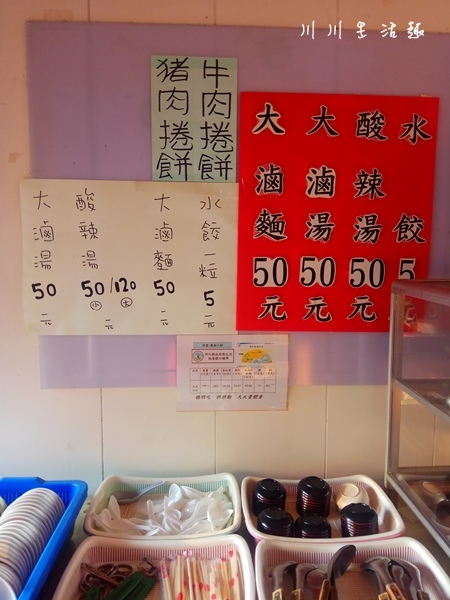 川川生活趣
牛肉捲餅
豬肉捲餅
水餃 5
酸辣湯 50元
大滷湯 50元
大滷麵 50元
水餃一粒 5元
大滷麵 50
酸辣湯 50小/120大 元
大滷湯 50元